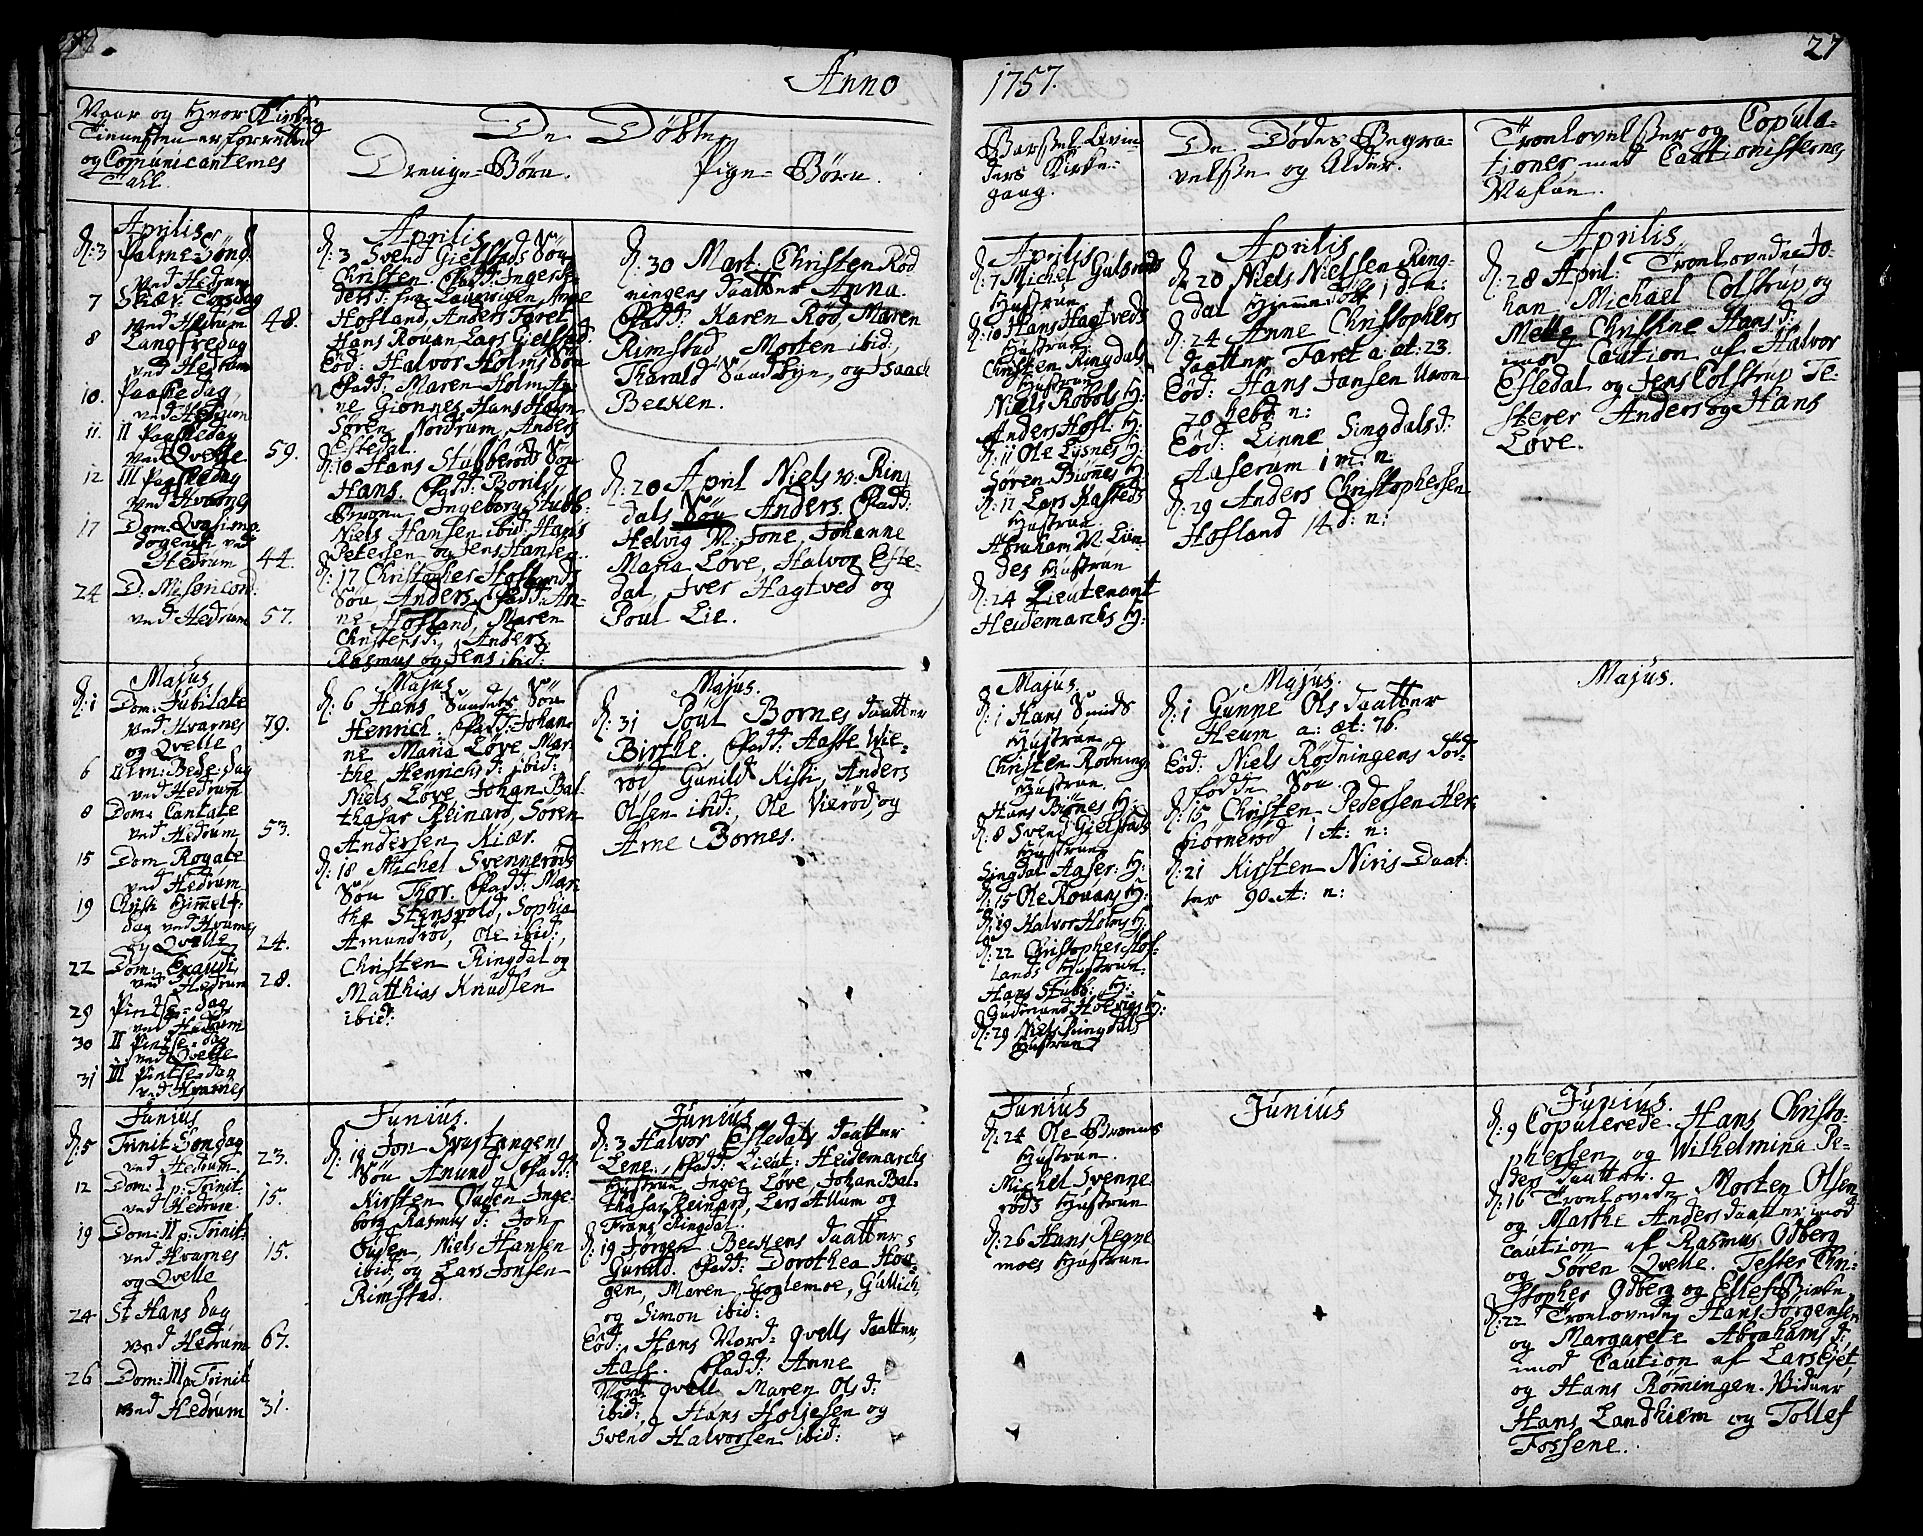 27
Anno
1757.
Naar og Hvor Kirke
Tienesten er forretted
og Comunicanternes
Tall.
De Döbte
Drenge-Börn.
Pige-Börn.
Barsel-Qvin
ders Kirke-
gang.
De Dödes Begra-
velse og Alder.
Troelovelser og Copula-
tioner med Cautionisternes
Nafne.
Aprilis
d: 3 Palme Sönd.
ved Hedrum
7 Skiær Torsdag
ved Hedrum 48.
8 Langfredag
ved Hedrum
10. Paaskedag
ved Hedrum
11. II Paaskedag
ved Qvelle 59.
12 III Paaskedag
ved Hvarnes
17 Dom: Qvasimo
dogeniti ved
Hedrum 44.
24 D. Misericord:
ved Hedrum 57.
Aprilis
d: 3 Svend Gielstads Sön
Christen Fadd: Inger
fra Laurvigen, Anne
Hofland, Anders Faret
Hans Rouan Lars Gielstad.
Eod: Halvor Holms Sön
Fadd: Maren Holm An
ne Gionnes, Hans Holm
Sören Nordrum, Anders
Estedal.
d: 10 Hans Stubberöds Sön
Hans. Fadd: Bertes
Bruone Ingeborg Stubb:
Niels Hansen ibid: Hans
Petersen og Jens Hansen.
d: 17 Christopher Hoflands
Sön Anders. Fadd: An-
ne Hofland, Maren
Christensd:, Anders
Rasmus og Jens ibid:
d: 30 Mart. Christen Röd
ningens Daatter Anna.
Fadd: Karen Röd, Maren
Rimstad, Morten ibid:
Tharald Sundbye, og Isaach
Becken.
d: 20 April Niels v. Ring
dals Sön Anders. Fadd:
Helvig M: Tone, Johanne
Maria Löve, Halvor Este-
dal, Iver Hagtved og
Poul Lie.
Aprilis
d: 7 Michel Gulsrøds
Hustrue
d: 10 Hans Hagtveds
Hustrue
Christen Ringdals
Hustrue
Niels Robols H:
Anders Hofl: H:
d: 11 Ole Lysnes H:
Sören Biönnes H:
d: 17 Lars Kasteds
Hustrue.
Abraham N: Lien-
des Hustrue
d: 24 Lieutenant
Heidemarchs H:
Aprilis
d: 20 Niels Nielsen Ring-
dal Hiemmedöbt 1 d: n:
d: 24 Anne Christophers
daatter Faret a: æt: 23.
Eod: Hans Jansen Uvon
70 Jebo n:
Eod: Linne Singdalsd:
Aaserum 1 m: n:
d: 29 Anders Christophersen
Hofland 14 d: n:
Aprilis
d: 28 April: Troelovede Jo-
han Michael Colstrup, og
Mette Christine Hansd:
imod Caution af Halvor
Estedal og Jens Colstrup Te-
sterer Anders og Hans
Löve.
Majus
d: 1 Dom: Jubilate
ved Hvarnes 79.
og Qvelle
6 Alm: Bede-Dag
ved Hedrum
8 Dom: Cantate
ved Hedrum 53.
15 Dom Rogate
ved Hedrum
19 Christi Himmelf:
dag ved Hvarnes
og Qvelle 24.
22 Dom: Exaudi
ved Hedrum 28.
29 Pintse-dag
ved Hedrum
30 II Pintse-dag
ved Qvelle
31 III Pintse-dag
ved Hvarnes
Majus
d: 6 Hans Sundets Sön
Henrich. Fadd: Johan-
ne Maria Löve, Mar-
the Henrichsd: ibid:
Niels Löve Johan Bal-
thasar Reinard, Sören
Andersen Kiær.
d: 18 Michel Svenneröds
Sön Thor. Fadd: Mar-
the Stensvold, Sophia
Amundröd, Ole ibid:,
Christen Ringdal og
Matthias Knudsen
ibid:
Majus.
d: 31 Poul Bornes Daatter
Birthe. Fadd: Aasse Wie-
röd Gunild Kisti, Anders
Olsen ibid: Ole Vieröd, og
Arne Bornes.
Majus.
d: 1 Hans Sunds
Hustrue
Christen Rödning
Hustrue
Hans Biönes H:
d: 8 Svend Gielstads
Hustrue
Singdal Aaser: H:
d: 15 Ole Rouans H:
d: 19 Halvor Holms H:
d: 22 Christopher Hof-
lands Hustrue.
Hans Stubb: H:
Gudmund Holvigs H:
d: 29 Niels Ringdals
Hustrue
Majus.
d: 1 Gunne Ols Daatter
Heum a: æt: 76.
Eod: Niels Rödningens död-
födde Sön
d: 15 Christen Pedersen Her
biörneröd 1 A: n:
d: 21 Kirsten Niris Daat:
ter 90 A: n:
Majus.
Junius
d: 5 Trinit. Söndag
ved Hedrum. 23.
12 Dom: I p: Trinit:
ved Hedrum 15.
19 Dom: II p: Trinit:
ved Hvarnes 15.
og Qvelle
24 St Hans dag
ved Hedrum 67.
26 Dom: III p: Trinit
ved Hedrum 31.
Junius.
d: 19 Jon Svastangens
Sön Anund. Fadd:
Kirsten Ouden Inge-
borg Rasmusd: Jon
Ouden, Niels Hansen
ibid: og Lars Jonsen
Rimstad.
Junius.
d: 3 Halvor Estedals Daatter
Lene. Fadd: Lieut: Heidemarchs
Hustrue Inger Löve, Johan Bal-
thasar Reinard, Lars Allum og
Frans Ringdal.
d: 19 Jörgen Beckens Daatter
Gunild. Fadd: Dorothea Hou-
gen, Maren Skoglemoe, Gullich
og Simon ibid:
Eod: Hans Nord: Qvells Daatter
Aase. Fadd: Anne
Nord: Qvell Maren Olsd:
ibid:, Hans Holjesen og
Svend Halvorsen ibid:
Junius
d: 24 Ole Bruenes
Hustrue.
Michel Svenne
röds Hustrue
d: 26 Hans Regne
moes Hustrue
Junius
Junius.
d: 9 Copulerede Hans Christo-
phersen og Wilhelmina Pe-
ders daatter.
d: 16 Troelovede Morten Olsen
og Marthe Anders daatter imod
caution af Rasmus Odberg
og Sören Qvelle. Tester Chri-
stopher Odberg og Ellef Birke
d: 22 Troelovede Hans Jörgensen
og Margarete Abrahams d:
imod Caution af Lars Ejet,
og Hans Römingen. Vidner
Hans Landhiem og Tollef
Fossene.